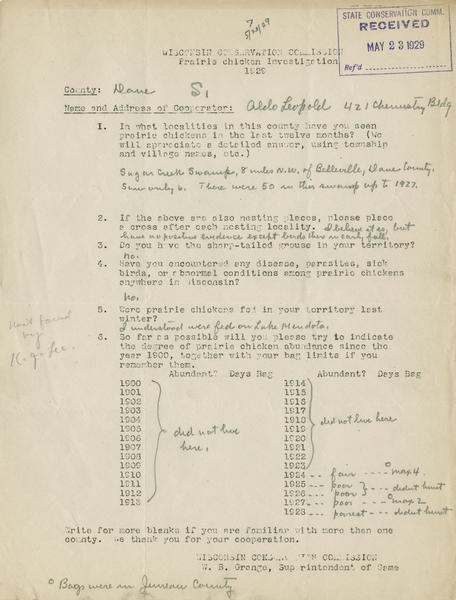 7
5/22/29
STATE CONSERVATION COMM.
RECEIVED
MAY 23 1929
Ref'd
WISCONSIN CONSERVATION COMMISSION
Prairie chicken Investigation
1929
County: Dane S1
Name and Address of Cooperator: Aldo Leopold 421 Chemistry Bldg
1. In what localities in this county have you seen
prairie chickens in the last twelve months? (We
will appreciate a detailed answer, using township
and village names, etc.)
Sugar Creek Swamp, 8 miles N.W. of Belleville, Dane County.
Saw only 6. There were 50 in this swamp up to 1927.
2. If the above are also nesting places, please place
a cross after each nesting locality. I believe it is, but
have no positive evidence except birds there in early fall.
3. Do you have the sharp-tailed grouse in your territory?
no.
4. Have you encountered any disease, parasites, sick
birds, or abnormal conditions among prairie chickens
anywhere in Wisconsin?
No.
5. Were prairie chickens fed in your territory last
winter?
I understand were fed on Lake Mendota.
6. So far as possible will you please try to indicate
the degree of prairie chicken abundance since the
year 1900, together with your bag limits if you
remember them.
Abundant? Days Bag Abundant? Days Bag
1900 1914
1901 1915
1902 1916
1903 1917
1904 1918 did not live here
1905 did not live 1919
1906 here. 1920
1907 1921
1908 1922
1909 1923
1910 1924 -- fair ---- o max 4
1911 1925 -- poor --- didnt hunt
1912 1926 -- poor
1913 1927 -- poor ---- o max 2
1928 -- poorest ---- didnt hunt
Write for more blanks if you are familiar with more than one
county. We thank you for your cooperation.
WISCONSIN CONSERVATION COMMISSION
W. B. Grange, Superintendent of Game
o Bags were in Juneau County